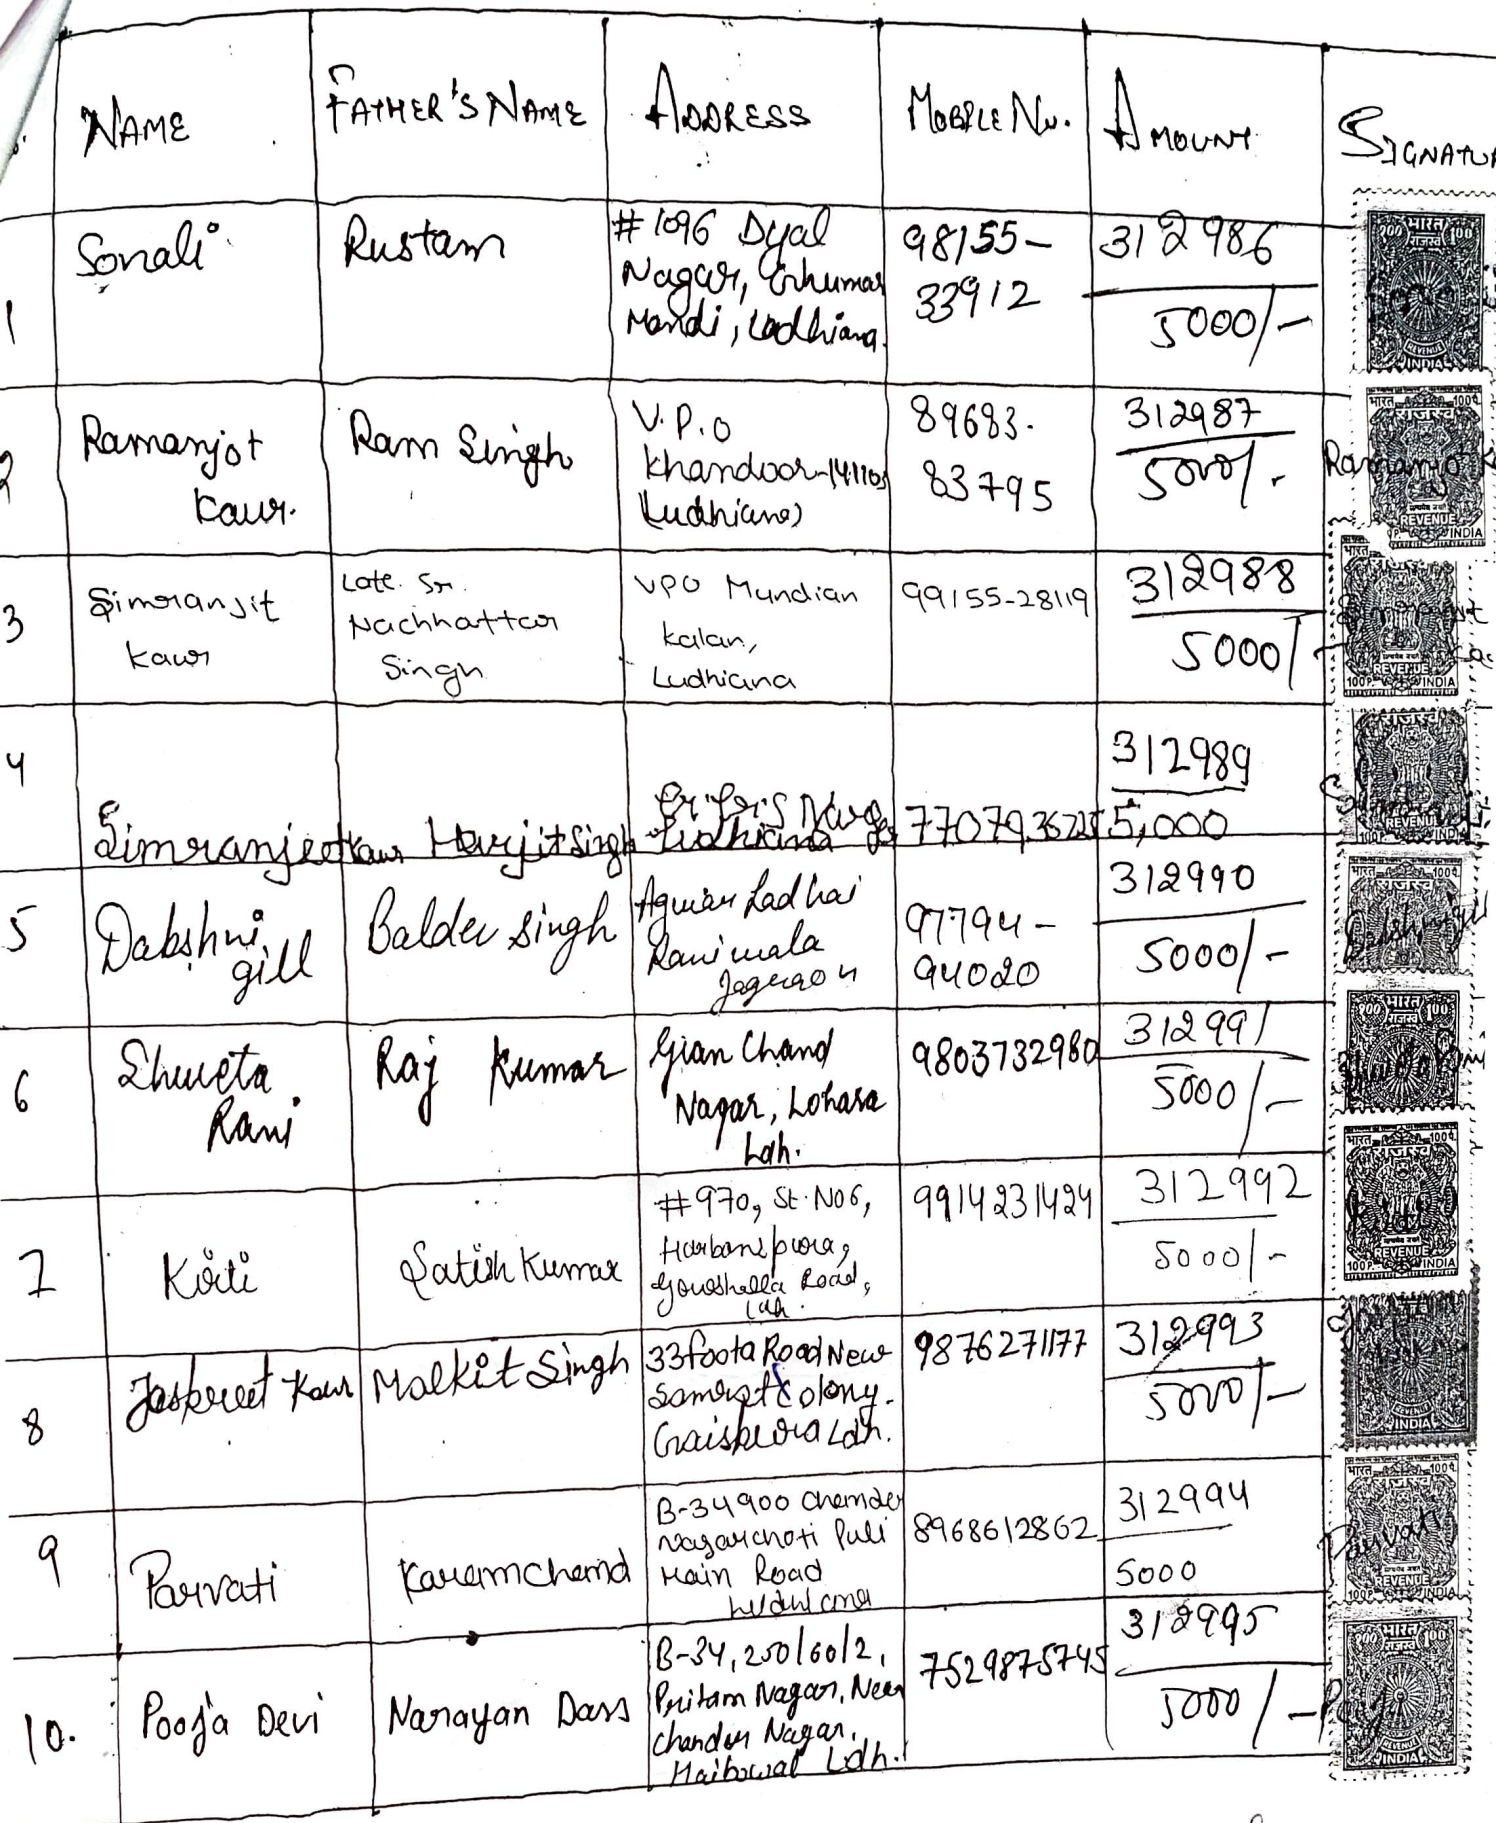 NAME
FATHER'S NAME
ADDRESS
MOBILE No.
AMOUNT
SIGNATU
1
Sonali
Rustam
#1096 Dyal
Nagar, Ghumar
Mandi, Ludhiana
98155-
33912
312986
5000/-
भारत
राजस्व
REVENUE
INDIA
2
Ramanjot
Kaur.
Ram Singh
V.P.O
Khandoor-141103
(Ludhiana)
89683.
83795
312987
5000/-
Ramanjot K
REVENUE
INDIA
3
Simranjit
Kaur
Late. Sr.
Nachhattar
Singh
VPO Mundian
Kalan,
Ludhiana
99155-28119
312988
5000/-
REVENUE
100P. INDIA
4
Simranjeet Kaur
Harjit Singh
Ludhiana
312989
5,000
REVENUE
5
Dakshni
gill
Baldev Singh
Agwar Ladhai
Raniwala
Jagraon
97794-
94020
312990
5000/-
भारत 100P.
राजस्व
Dakshni gill
6
Shweta
Rani
Raj Kumar
Gian Chand
Nagar, Lohara
Ldh.
9803732980
312991
5000/-
भारत
राजस्व
7
Kirti
Satish Kumar
#970, St. No 6,
Harbanspura,
Goushalla Road,
Ldh.
9914231424
312992
5000/-
भारत 100P.
राजस्व
REVENUE
100P. INDIA
8
Jaspreet Kaur
Malkit Singh
33 foota Road New
Samrat Colony.
Giaspura Ldh.
9876271177
312993
5000/-
INDIA
9
Parvati
Karamchand
B-34900 Chander
Nagar choti Puli
Main Road
Ludhiana
8968612862
312994
5000
भारत 100P.
Parvati
REVENUE
100P. INDIA
10.
Pooja Devi
Narayan Dass
B-34, 250/60/2,
Pritam Nagar, Near
Chander Nagar,
Haibowal Ldh.
7529875745
312995
5000/-
भारत
राजस्व
REVENUE
INDIA